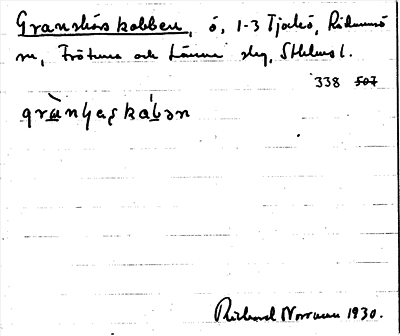 Granshärskobben, ö, 1-3 Tjockö, Rådmansö
sn, Frötuna och Länna skg, Sthlms l.
338 507
Richard Norrman 1930.